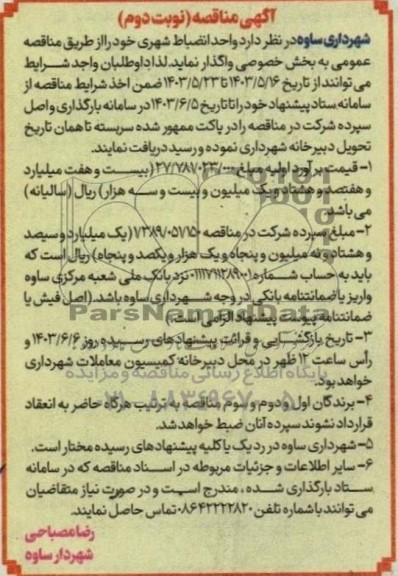 آگهی مناقصه (نوبت دوم)
شهرداری ساوه در نظر دارد واحد انضباط شهری خود را از طریق مناقصه
عمومی به بخش خصوصی واگذار نماید. لذا داوطلبان واجد شرایط
می توانند از تاریخ ۱۴۰۳/۵/۱۶ تا ۱۴۰۳/۵/۲۳ ضمن اخذ شرایط مناقصه از
سامانه ستاد پیشنهاد خود را تا تاریخ ۱۴۰۳/۶/۵ در سامانه بارگذاری و اصل
سپرده شرکت در مناقصه را در پاکت ممهور شده سربسته تا همان تاریخ
تحویل دبیرخانه شهرداری نموده و رسید دریافت نمایند.
۱- قیمت برآورد اولیه مبلغ ۲۷/۷۸۷/۰۲۳/۰۰۰ (بیست و هفت میلیارد
و هفتصد و هشتاد و یک میلیون و بیست و سه هزار) ریال (سالیانه)
می باشد.
۲- مبلغ سپرده شرکت در مناقصه ۱/۳۸۹/۰۵۱/۱۵۰ (یک میلیارد و سیصد
و هشتاد و نه میلیون و پنجاه و یک هزار و یکصد و پنجاه) ریال است که
باید به حساب شماره نزد بانک ملی شعبه مرکزی ساوه
واریز یا ضمانتنامه بانکی در وجه شهرداری ساوه باشد. (اصل فیش یا
ضمانتنامه پیوست پیشنهاد الزامی است.)
ParsNamadData
۳- تاریخ بازگشایی و قرائت پیشنهادهای رسیده روز ۱۴۰۳/۶/۶ و
رأس ساعت ۱۲ ظهر در محل دبیرخانه کمیسیون معاملات شهرداری
پایگاه اطلاع رسانی مناقصه و مزایده
خواهد بود.
۰۲۱-۸۸۳۴۹۶۷۰-۵
۴- برندگان اول و دوم و سوم مناقصه به ترتیب هرگاه حاضر به انعقاد
قرارداد نشوند سپرده آنان ضبط خواهد شد.
۵- شهرداری ساوه در رد یک یا کلیه پیشنهادهای رسیده مختار است.
۶- سایر اطلاعات و جزئیات مربوطه در اسناد مناقصه که در سامانه
ستاد بارگذاری شده، مندرج است و در صورت نیاز متقاضیان
می توانند با شماره تلفن ۰۸۶۴۲۲۲۲۸۲۰ تماس حاصل نمایند.
رضا مصباحی
شهردار ساوه